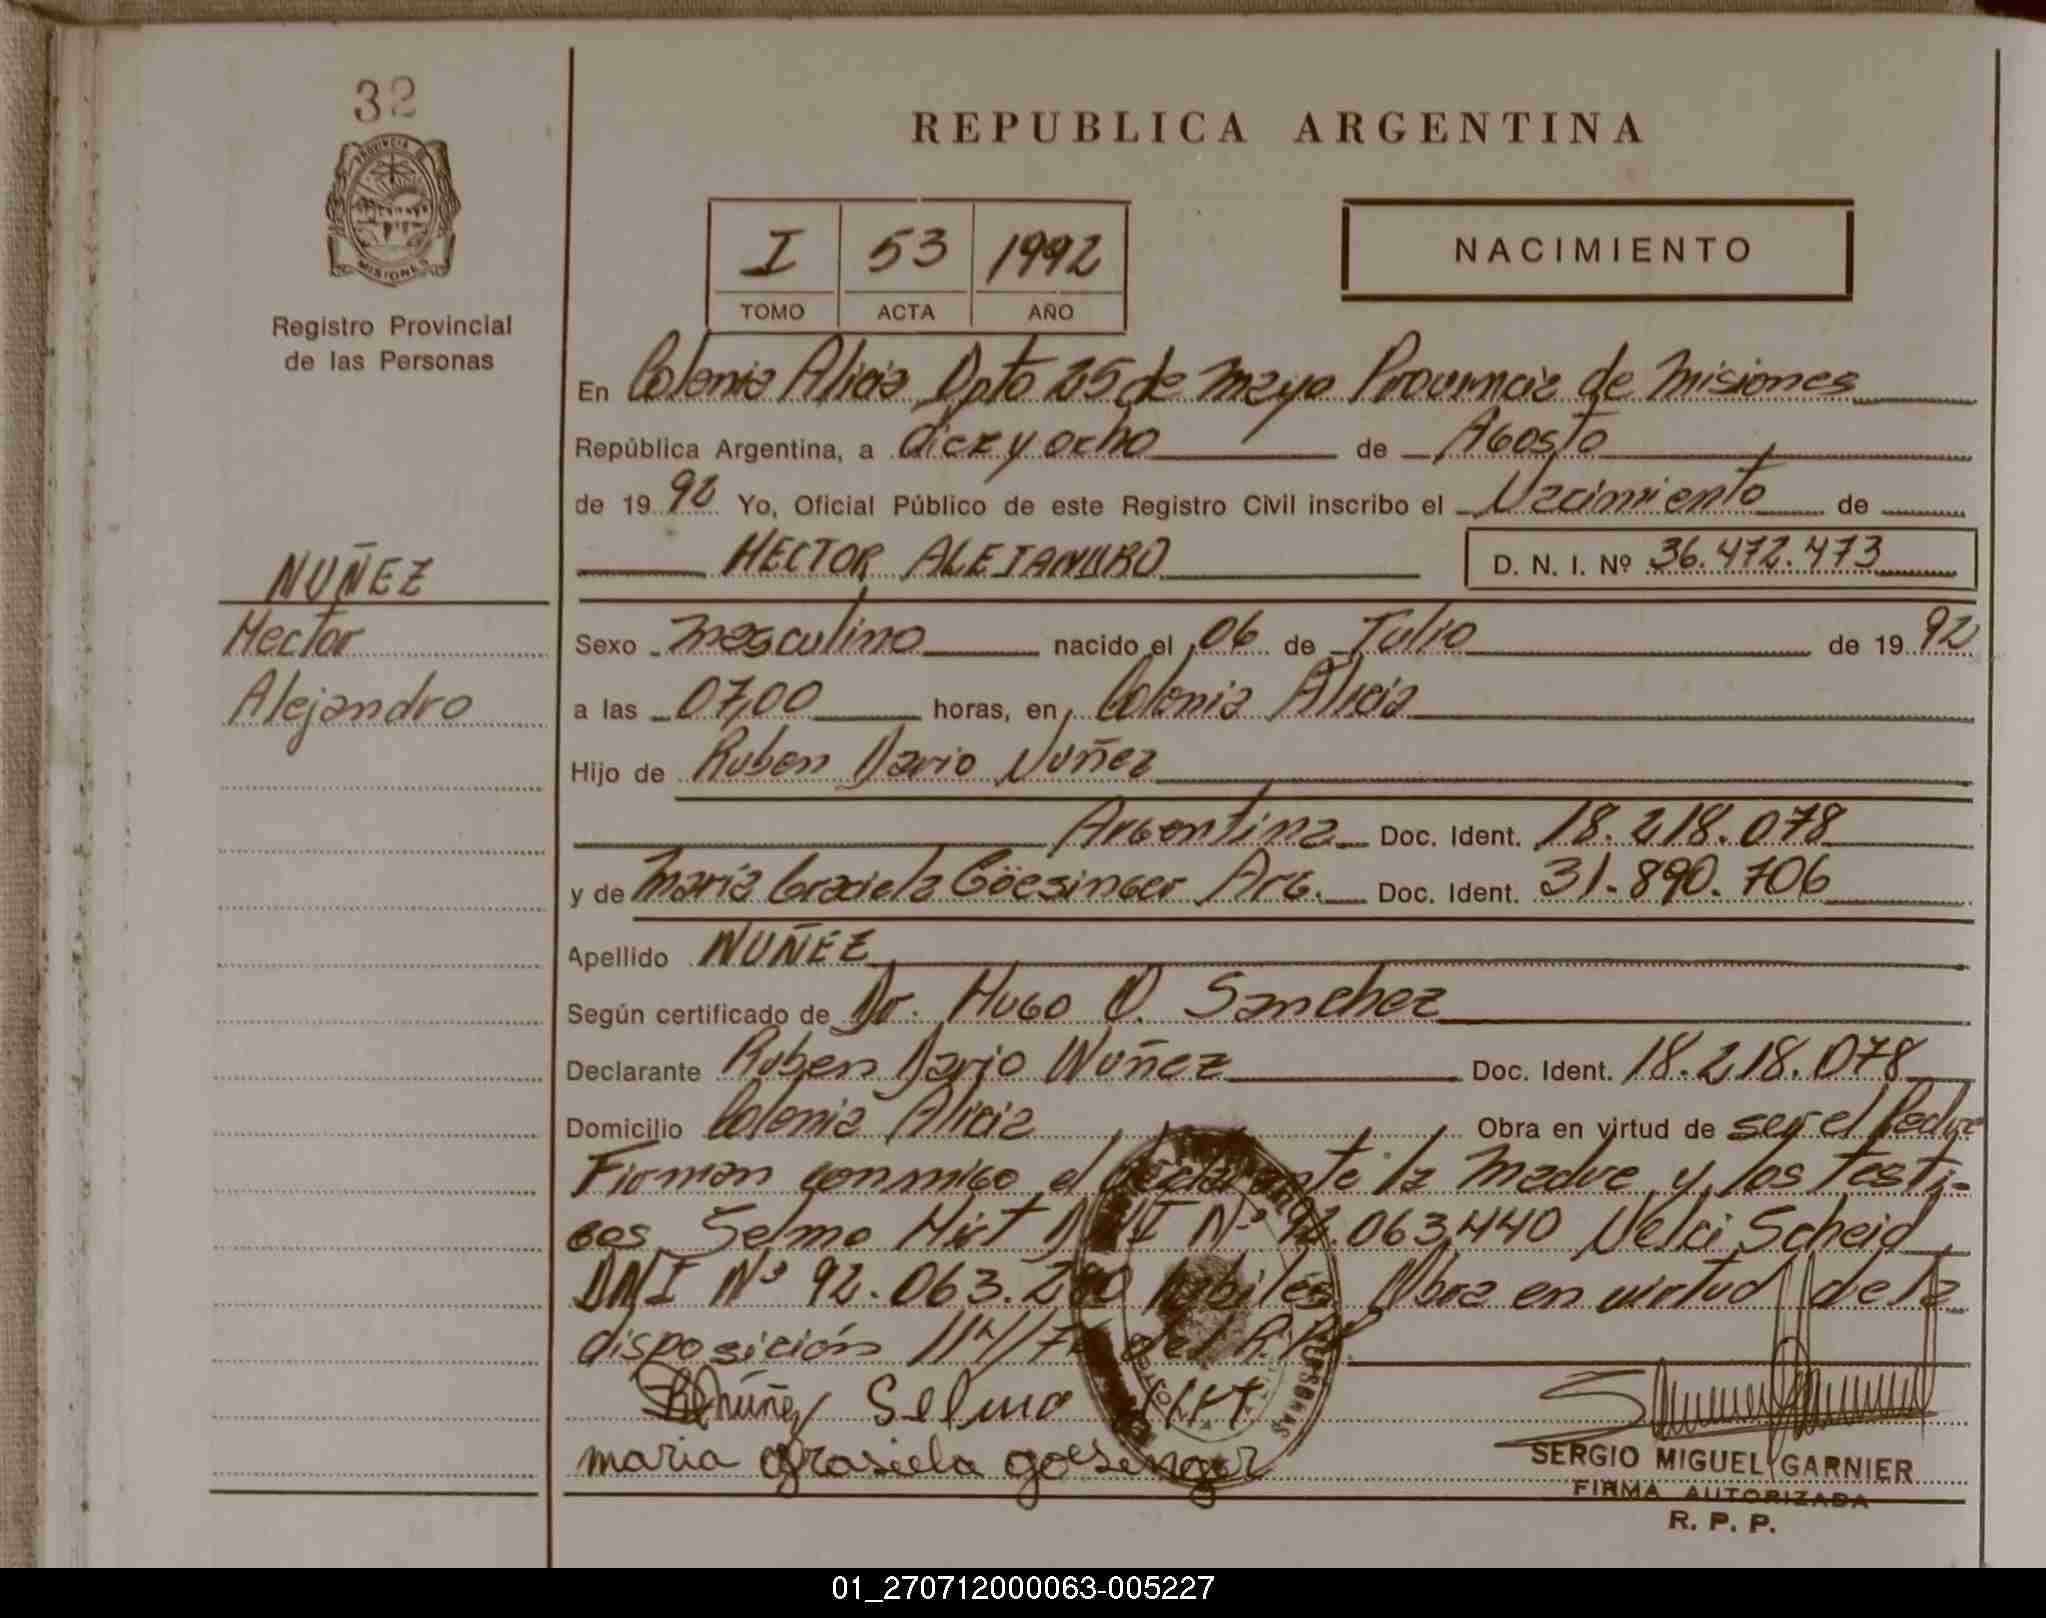 32
PROVINCIA DE
MISIONES
Registro Provincial
de las Personas
REPUBLICA ARGENTINA
I 53 1992
TOMO ACTA AÑO
NACIMIENTO
En Colonia Alicia Dpto 25 de Mayo Provincia de Misiones
República Argentina, a diez y ocho de Agosto
de 1992 Yo, Oficial Público de este Registro Civil inscribo el Nacimiento de
HECTOR ALEJANDRO D. N. I. Nº 36.472.473
NUÑEZ
Hector
Alejandro
Sexo Masculino nacido el 06 de Julio de 1992
a las 07,00 horas, en Colonia Alicia
Hijo de Ruben Dario Nuñez
Argentina Doc. Ident. 18.218.078
y de Maria Graciela Göesinger Arg. Doc. Ident. 31.890.706
Apellido NUÑEZ
Según certificado de Dr. Hugo O. Sanchez
Declarante Ruben Dario Nuñez Doc. Ident. 18.218.078
Domicilio Colonia Alicia Obra en virtud de ser el Padre
Firman conmigo el declarante la Madre y los testi-
gos Selmo Hirt DNI Nº 92.063.440 Nelci Scheid
DNI Nº 92.063.290 habiles Obra en virtud de la
disposición 114/ del R.P.P.
Núñez Selmo Hirt
maria grasiela goesinger
SERGIO MIGUEL GARNIER
FIRMA AUTORIZADA
R. P. P.
01_270712000063-005227